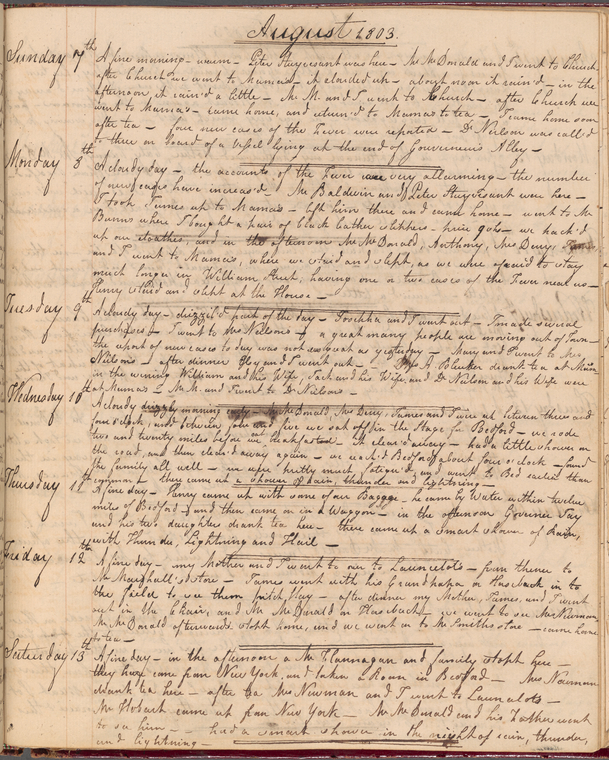 August 1803.
Sunday 7th A fine morning - warm - Peter Stuyvesant was here - Mr McDonald and I went to Church,
after Church we went to Mamas - it clouded up - about noon it rain'd - in the
afternoon it rain'd a little - Mr M. and I went to Church - after Church we
went to Mamas - came home, and return'd to Mamas to tea - I came home soon
after tea - four new cases of the Fever were reported - Dr Neilson was call'd
to three on board of a Vessel lying at the end of Gouverneurs Alley -
Monday 8th A cloudy day - the accounts of the Fever were very allarming - the number
of new cases have increas'd - Mr Baldwin and Peter Stuyvesant were here -
I took James up to Mamas - left him there and came home - went to Mr
Burns where I bought a pair of black leather slippers - price 9/ - we pack'd
up our cloathes, and in the afternoon Mr McDonald, Anthony, Mrs Dewy, James
and I went to Mamas, where we staid and slept, as we were afraid to stay
much longer in William Street, having one or two cases of the Fever near us -
Henry staid and slept at the House -
Tuesday 9th A cloudy day - drizzl'd part of the day - and I went out - I made several
purchases - I went to Mrs Neilsons - a great many people are moving out of Town -
the report of new cases to day was not so great as yesterday - Mary and I went to Mrs
Neilsons - after dinner and I went out - A Bleecker drank tea at Mamas
in the evening William and his Wife, Jack and his Wife, and Dr Neilson and his Wife were
at Mamas - Mr M. and I went to Dr Neilsons -
Wednesday 10th A cloudy drizzly morning early - Mr McDonald, Mrs Dewy, James and I were up between three and
four o'clock, and between four and five we set off in the Stage for Bedford - we rode
two and twenty miles before we breakfasted - it clear'd away - had a little shower on
the road, and then clear'd away again - we reach'd Bedford about four o'clock - found
the family all well - we were pritty much fatigu'd and went to Bed earlier than
common - there came up a shower of rain, thunder and lightning -
Thursday 11th A fine day - Henry came up with some of our Baggage - he came by Water within twelve
miles of Bedford - and then came on in a Waggon - in the afternoon Governer Jay
and his two daughters drank tea here - there came up a smart shower of Rain,
with Thunder, Lightning and Hail -
Friday 12th A fine day - my Mother and I went to see to Launcelots - from there to
Mr Marshall's store - James went with his Grandpapa on Horseback in to
the field to see them pitch Hay - after dinner my Mother, James, and I went
out in the Chair, and Mr McDonald on Horseback - we went to see Mrs Newman
Mr McDonald afterwards stopt home, and we went on to Mr Smiths store - came home
to tea -
Saturday 13th A fine day - in the afternoon a Mr Flannagan and family stopt here -
they have come from New York, and taken a Room in Bedford - Mrs Newman
drank tea here - after tea Mrs Newman and I went to Launcelots -
Mr Hobart came up from New York - Mr McDonald and his Father went
to see him - had a smart shower in the night of rain, thunder,
and lightning -